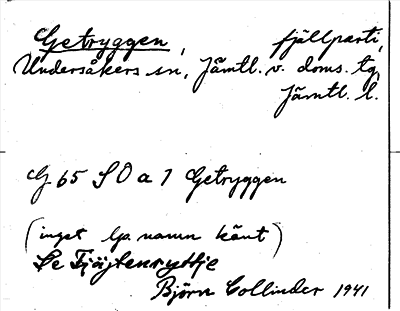 Getryggen, fjällparti,
Undersåkers sn, Jämtl. v. doms. tg,
Jämtl. l.
G 65 SO a 1 Getryggen
(inget lp. namn känt)
Se Tjäjtenryttje
Björn Collinder 1941